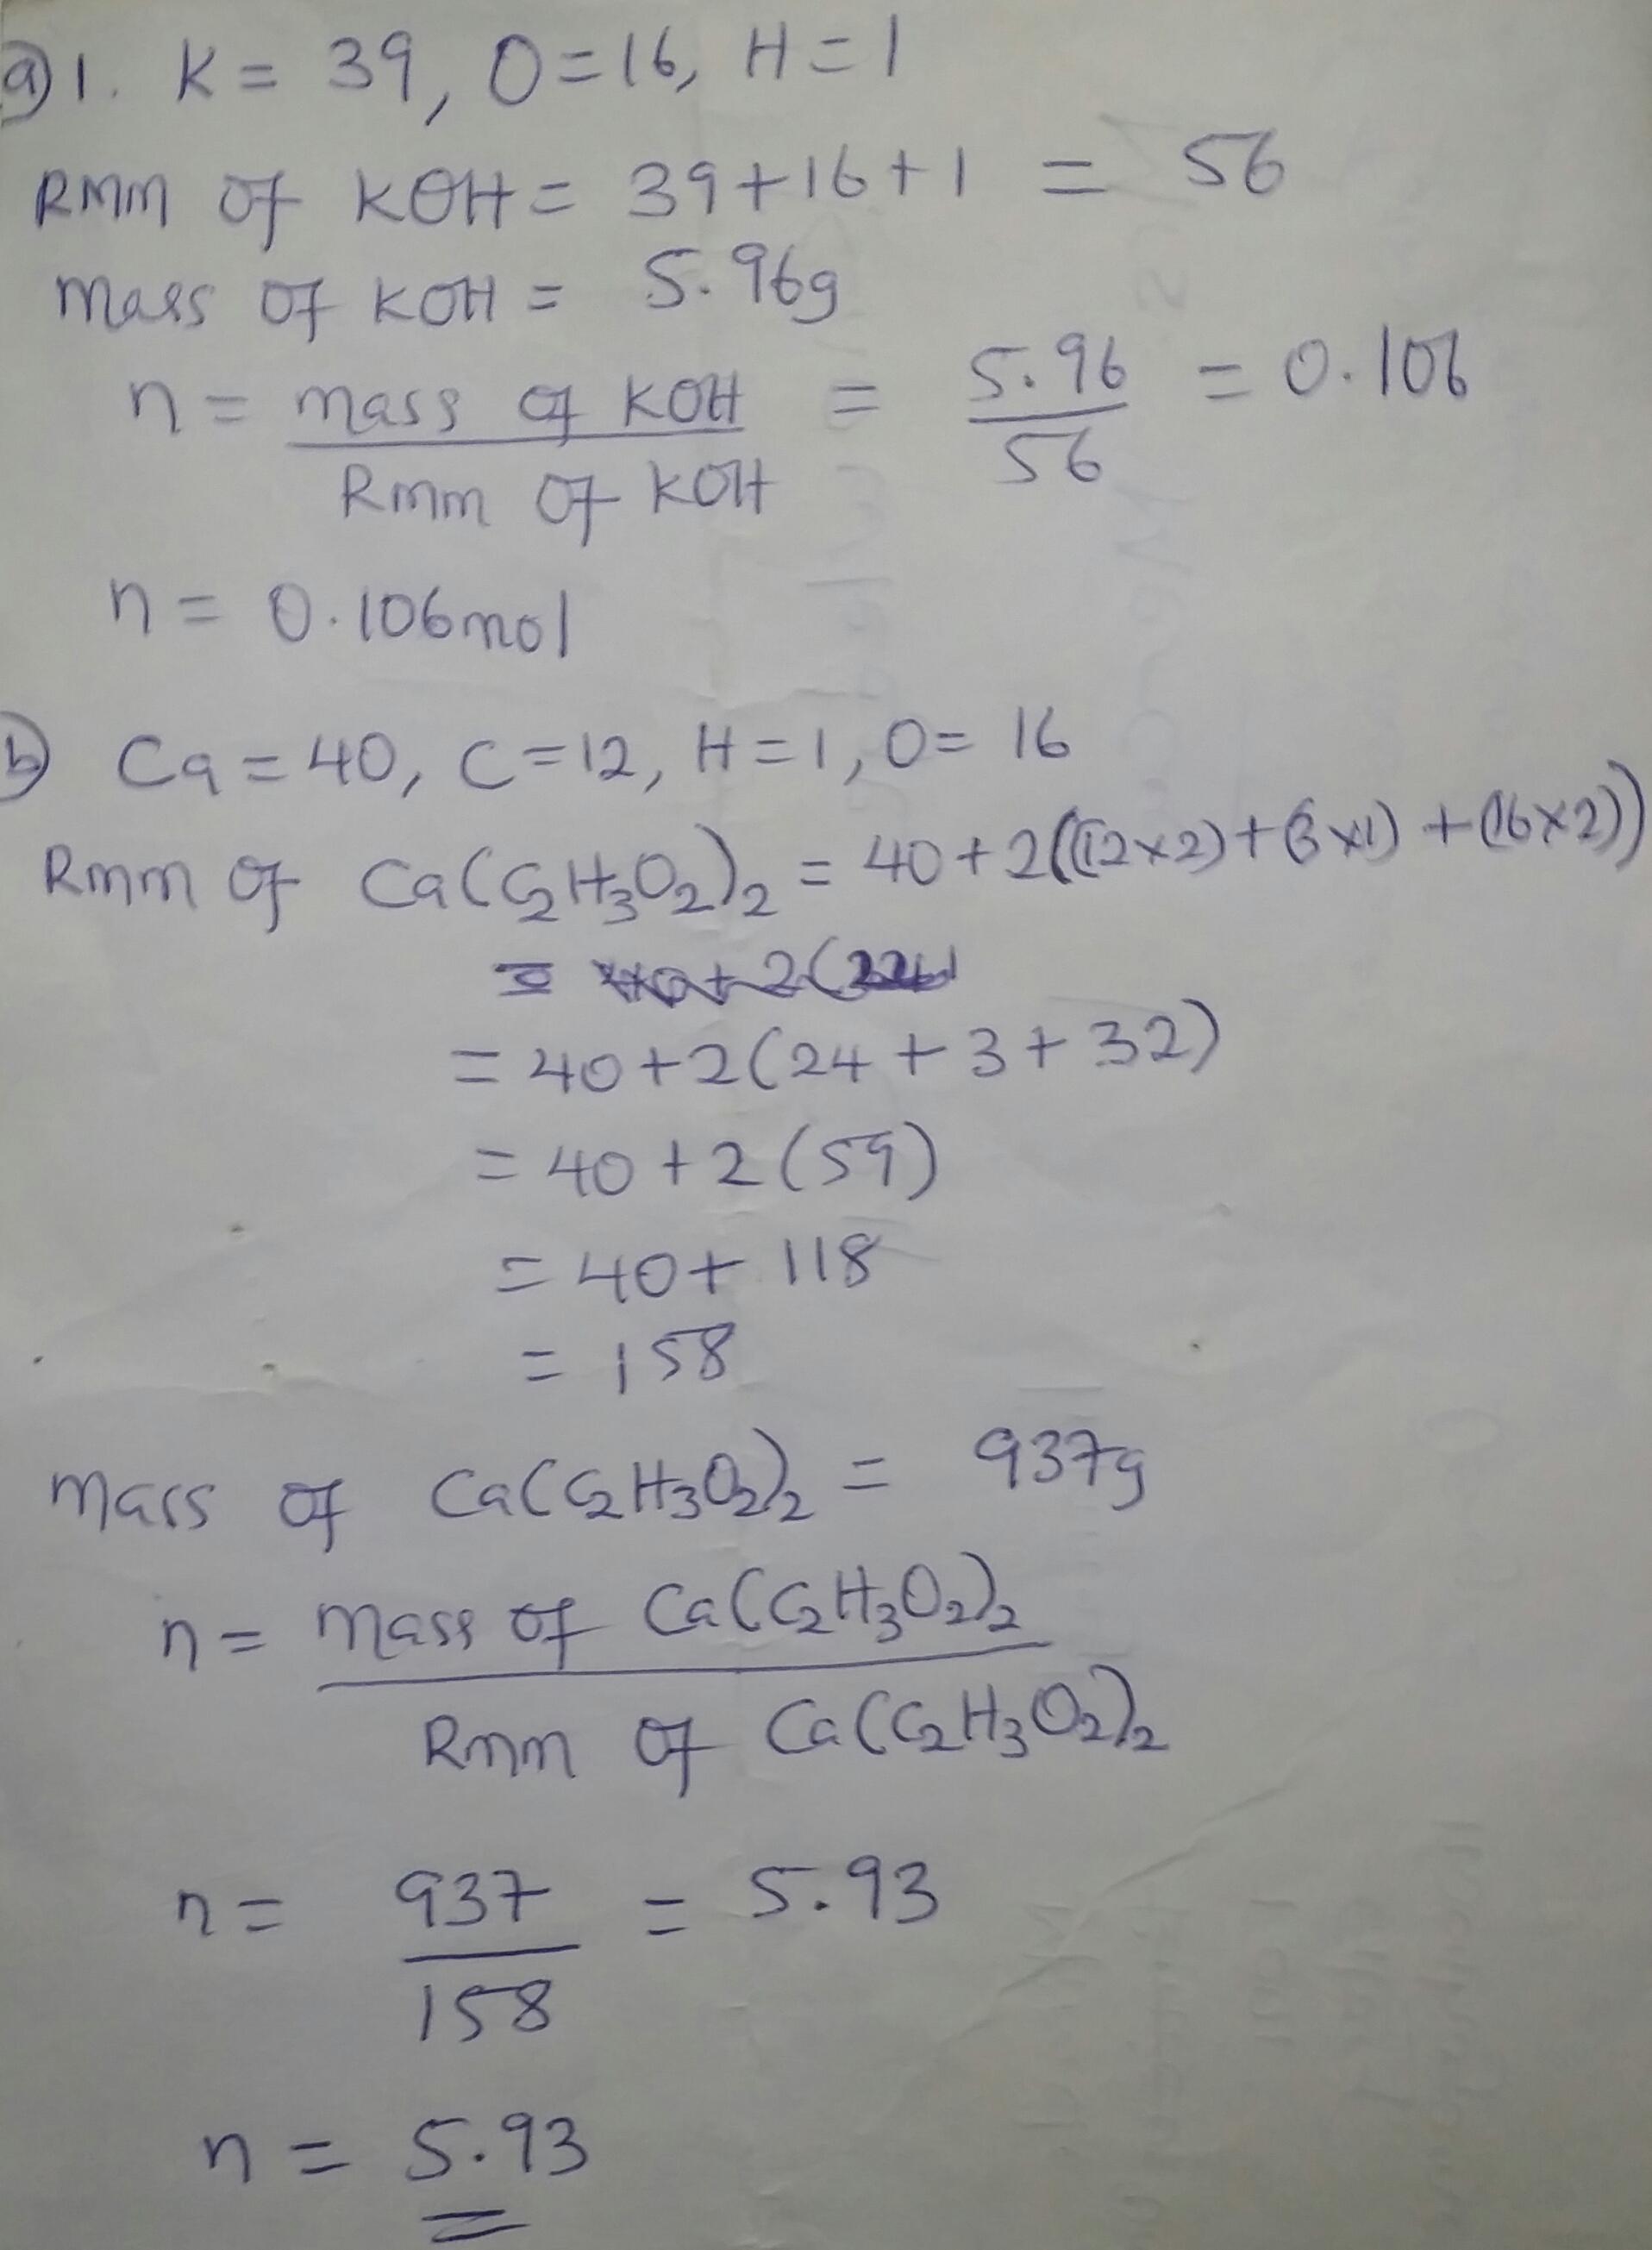 a) 1. K = 39, O = 16, H = 1
RMM of KOH = 39 + 16 + 1 = 56
Mass of KOH = 5.96g
n = mass of KOH / Rmm of KOH = 5.96 / 56 = 0.106
n = 0.106mol
b) Ca = 40, C = 12, H = 1, O = 16
Rmm of Ca(C₂H₃O₂)₂ = 40 + 2((12×2) + (3×1) + (16×2))
= 40 + 2(24 + 3 + 32)
= 40 + 2(59)
= 40 + 118
= 158
Mass of Ca(C₂H₃O₂)₂ = 937g
n = mass of Ca(C₂H₃O₂)₂ / Rmm of Ca(C₂H₃O₂)₂
n = 937 / 158 = 5.93
n = 5.93